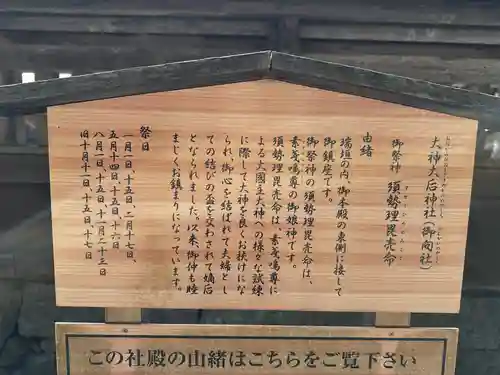 大神大后神社(御向社)
御祭神 須勢理毘売命
由緒
瑞垣の内、御本殿の東側に接して
御鎮座です。
御祭神の須勢理毘売命は、
素戔嗚尊の御娘神です。
須勢理毘売命は、素戔嗚尊に
よる大國主大神への様々な試練
に際して大神を良くお扶けにな
られ、御心を結ばれて夫婦とし
ての結びの盃を交わされて嫡后
となられました。以来、御仲も睦
まじくお鎮まりになっています。
祭日
一月一日、十五日、二月十七日、
五月十四日、十五日、十六日
八月一日、十五日、十一月二十三日
旧十月十一日、十五日、十七日
この社殿の由緒はこちらをご覧下さい